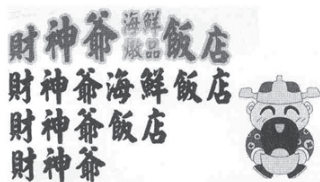 財神爺海鮮品飯店
財神爺海鮮飯店
財神爺飯店
財神爺